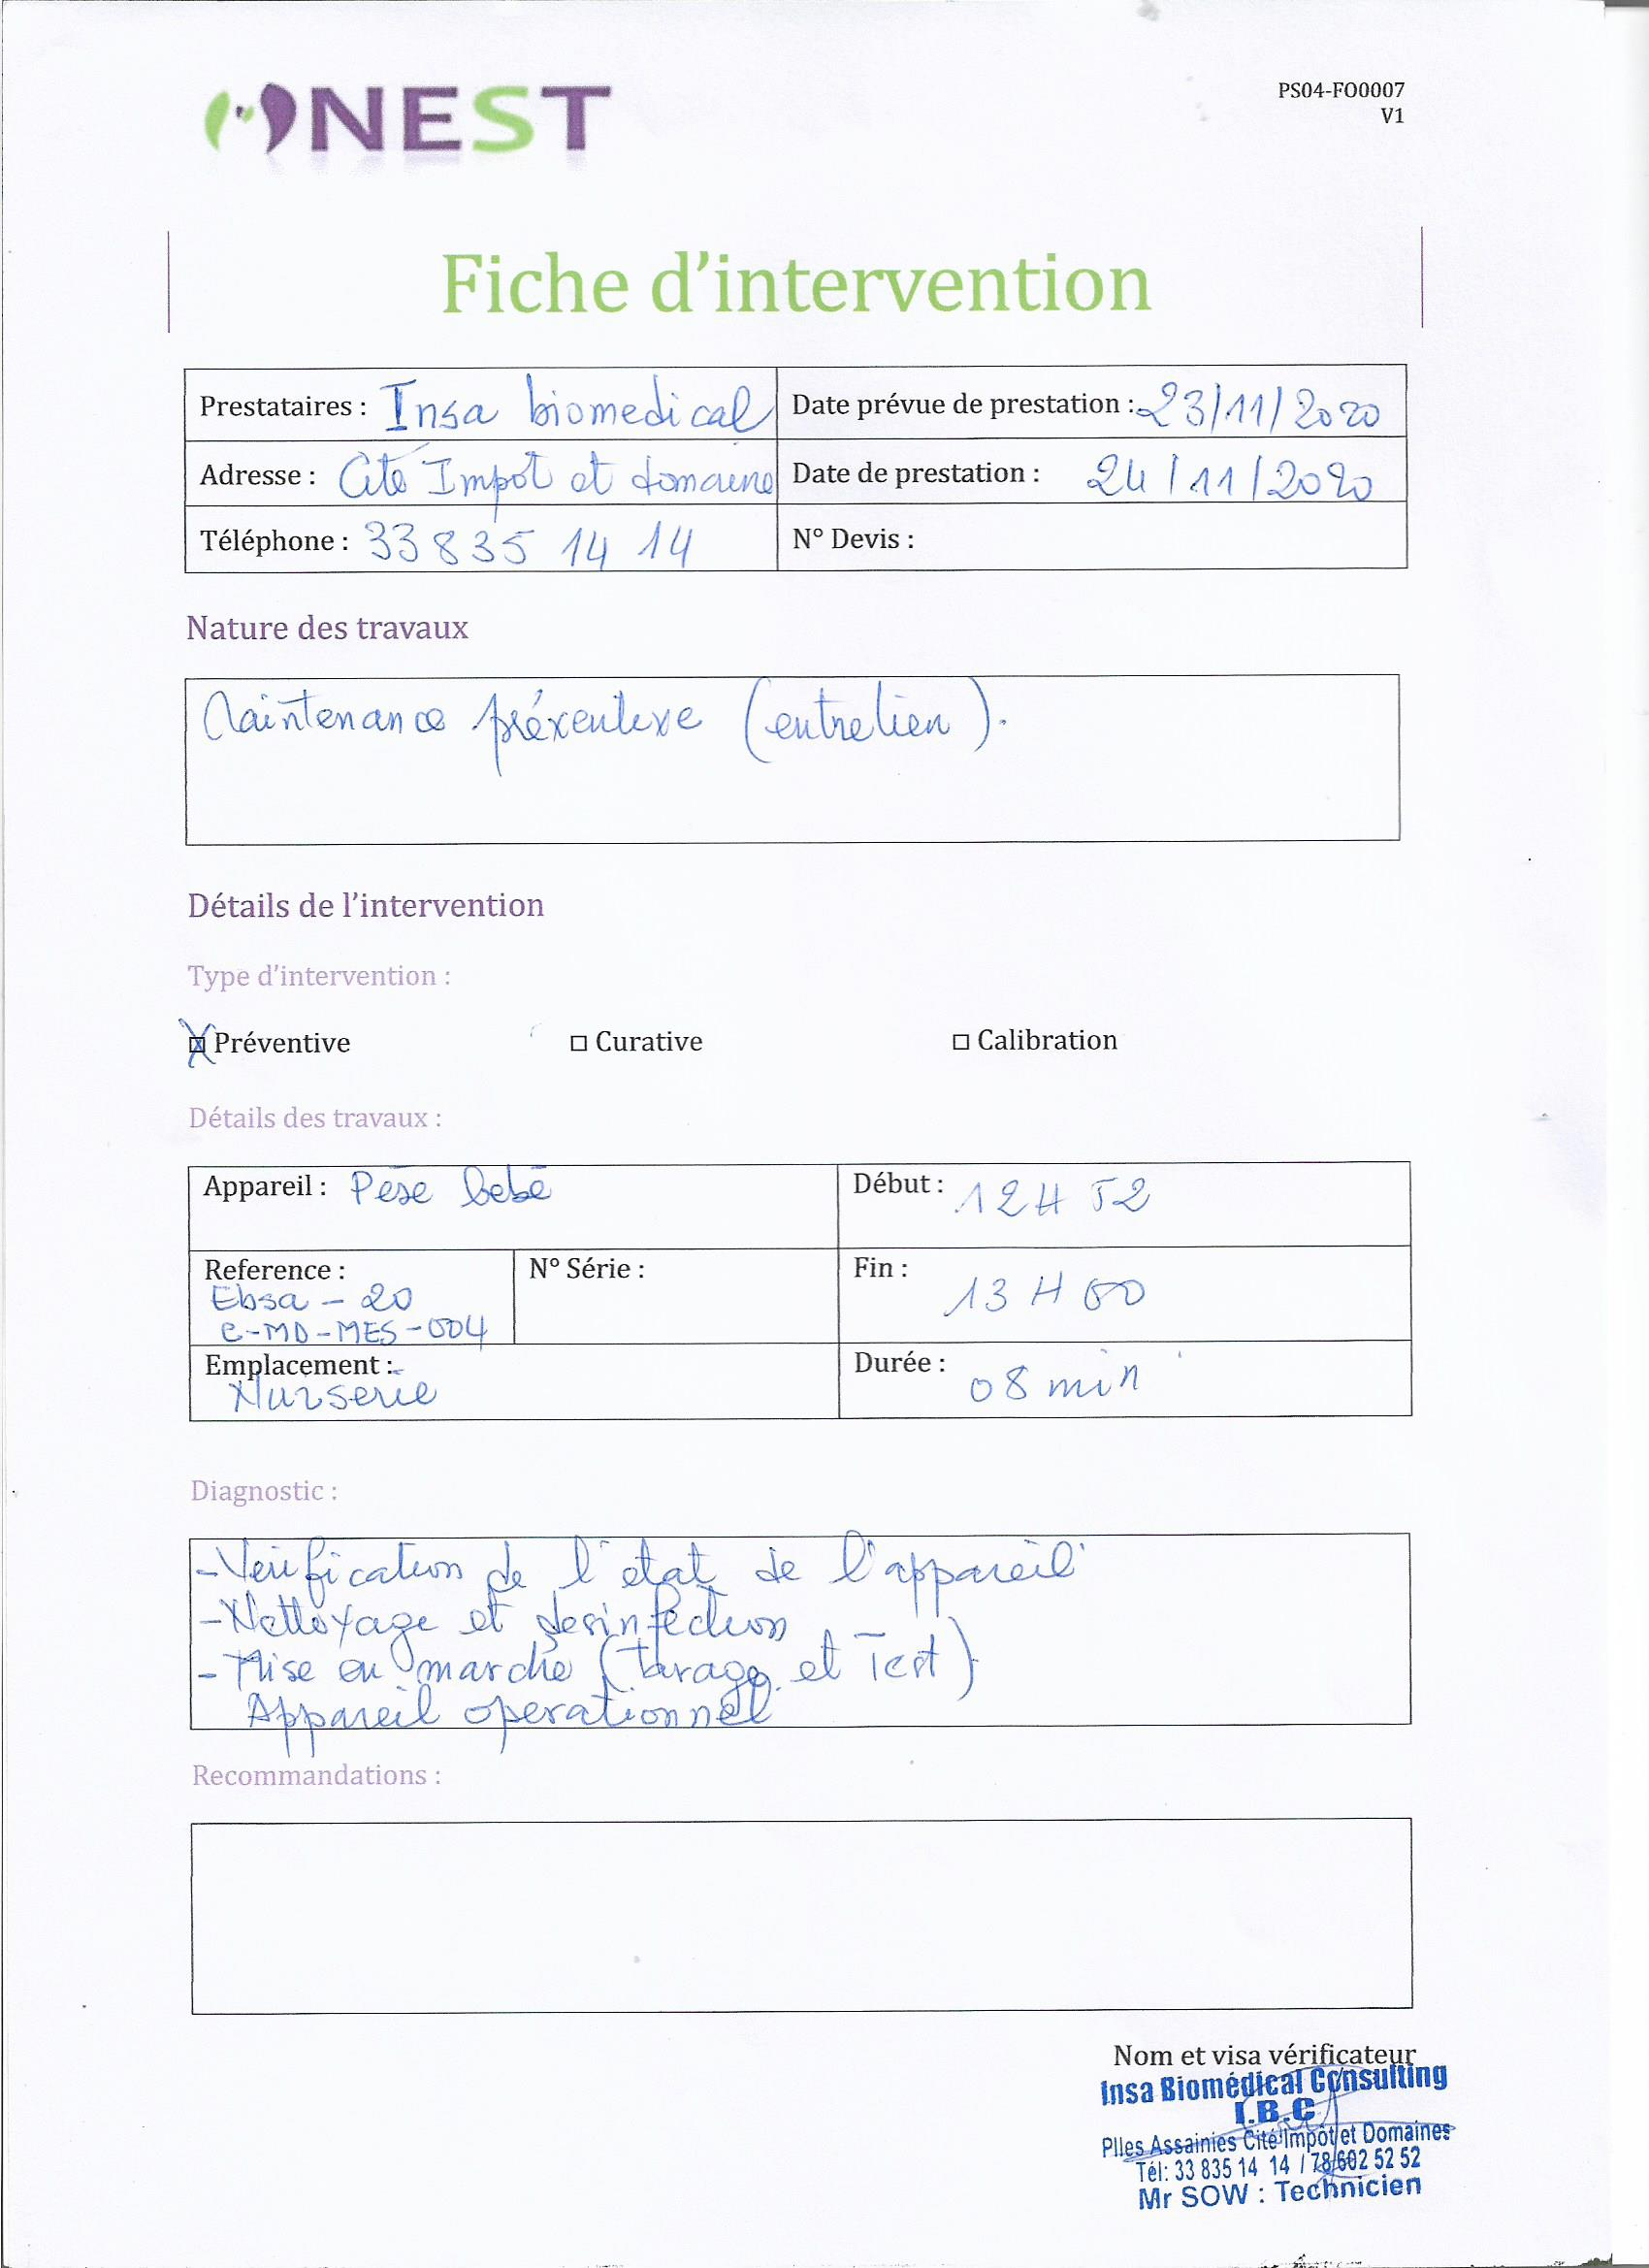 NEST
PS04-FO0007
V1
Fiche d'intervention
Prestataires : Insa biomedical
Date prévue de prestation : 23/11/2020
Adresse : Cité Impôt et domaine
Date de prestation : 24/11/2020
Téléphone : 33 835 14 14
N° Devis :
Nature des travaux
Maintenance préventive (entretien).
Détails de l'intervention
Type d'intervention :
☒ Préventive ☐ Curative ☐ Calibration
Détails des travaux :
Appareil : Pèse bebé
Début : 12H 52
Reference :
Ebsa - 20
C-MD-MES-004
N° Série :
Fin : 13 H 00
Emplacement :
Nurserie
Durée : 08 min
Diagnostic :
- Verification de l'etat de l'appareil
- Nettoyage et desinfection
- Mise en marche (tarage et Test)
Appareil operationnel
Recommandations :
Nom et visa vérificateur
Insa Biomédical Consulting
I.B.C
Plles Assainies Cité Impôt et Domaines
Tél: 33 835 14 14 / 78 602 52 52
Mr SOW : Technicien